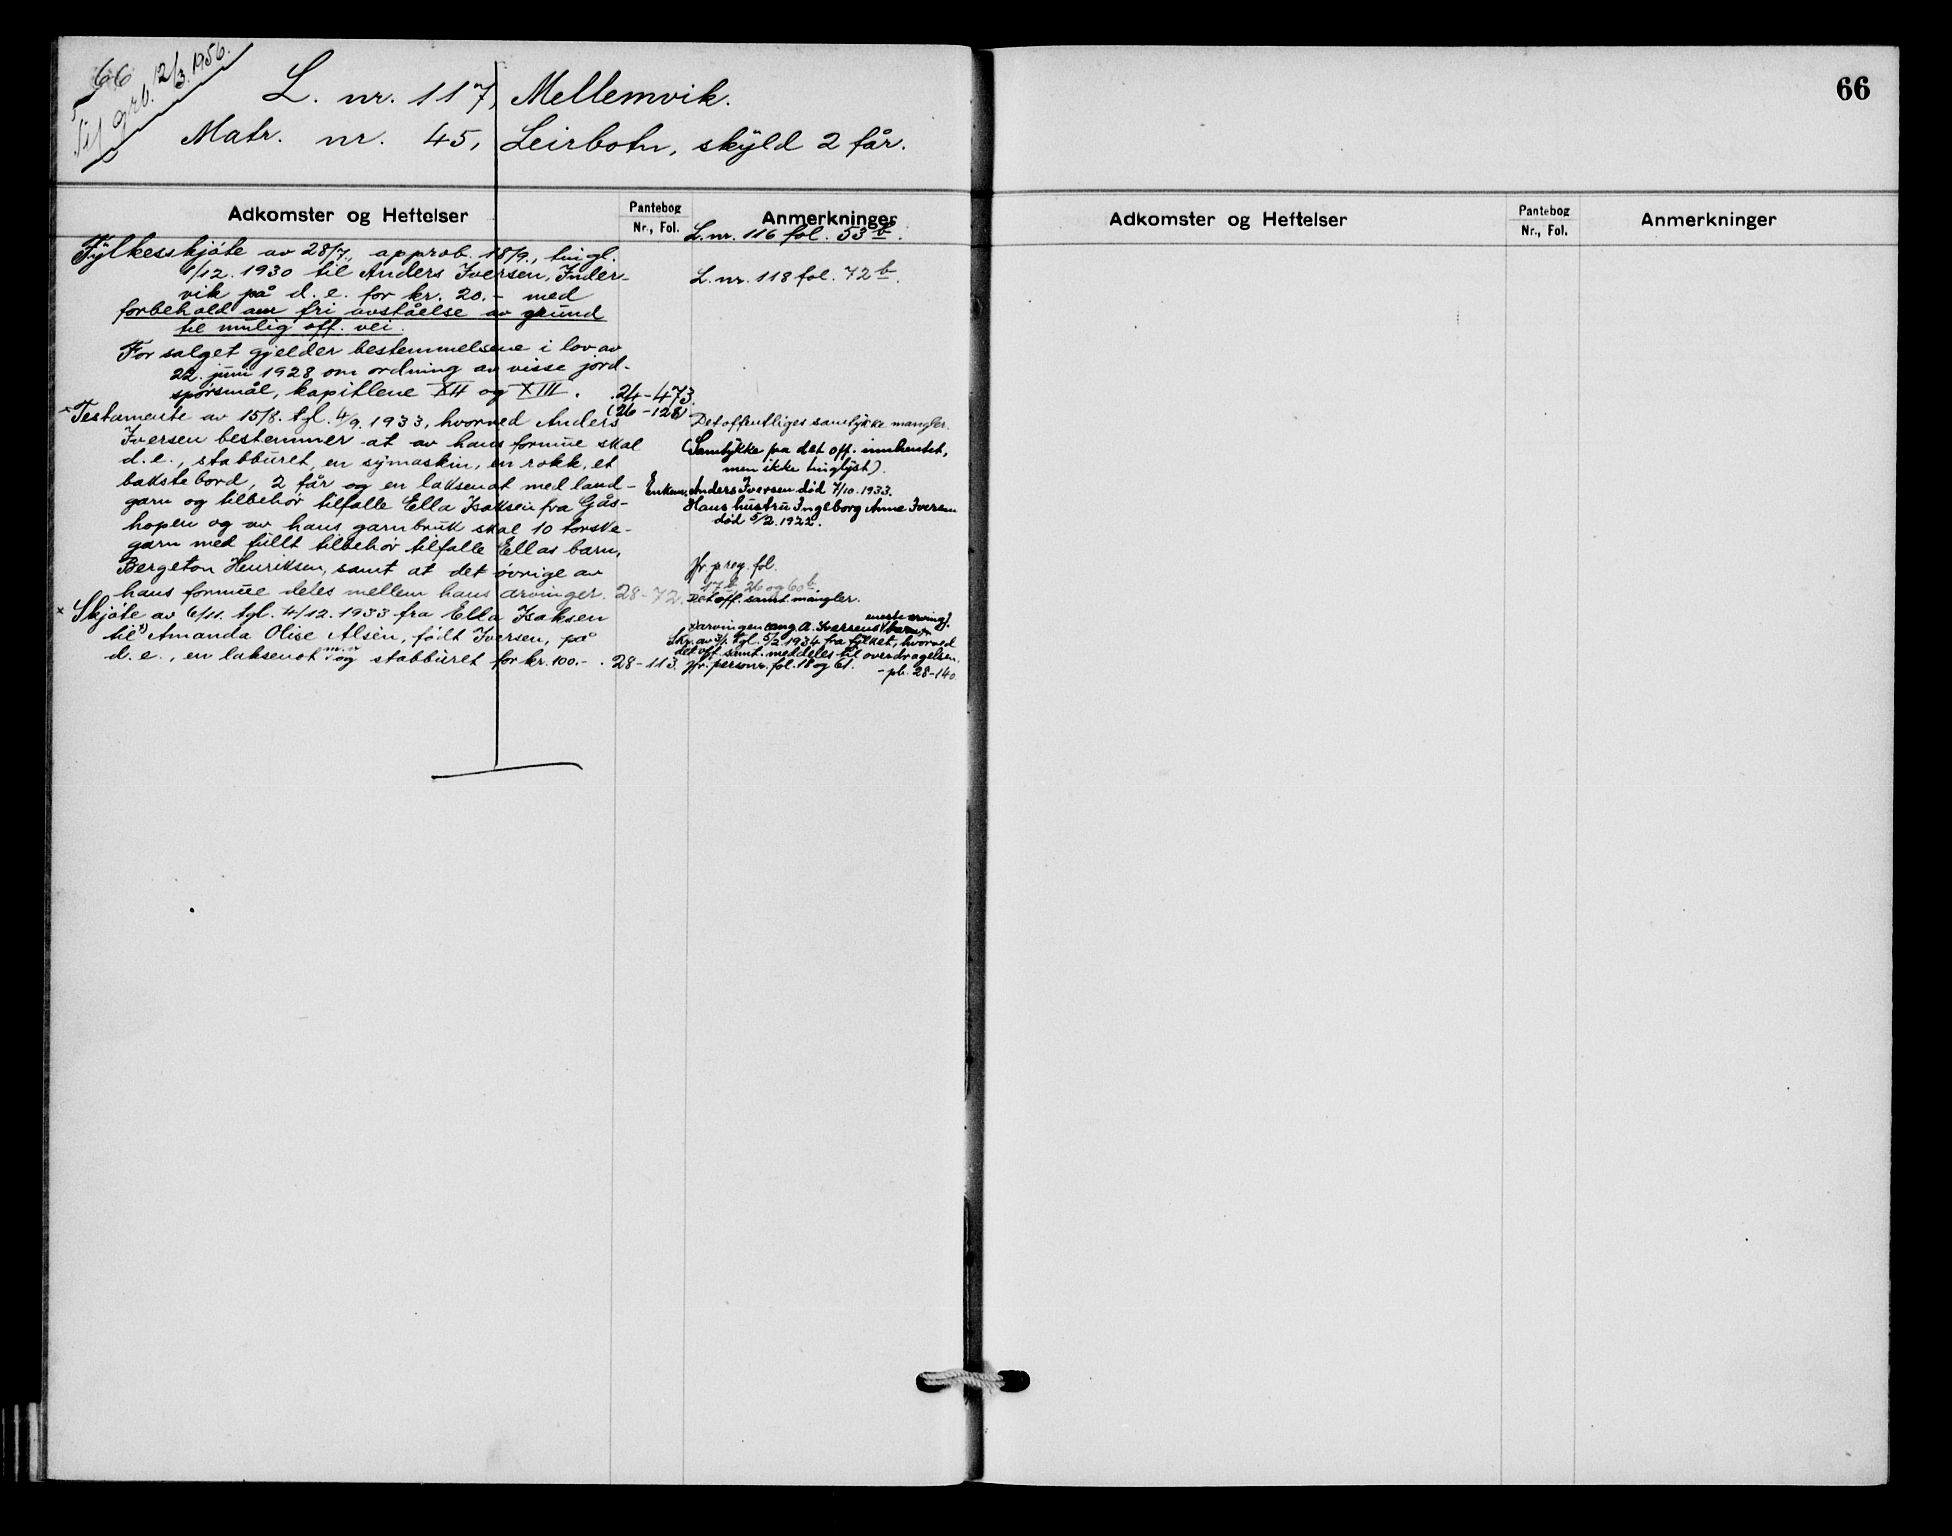 66
Til grb. 12/3. 1956.
L. nr. 117, Mellemvik.
Matr. nr. 45, Leirbotn, skyld 2 får.
Adkomster og Heftelser
Pantebog
Nr., Fol.
Anmerkninger
Fylkesskjøte av 28/7., approb. 18/9., tingl.
1/12. 1930 til Anders Iversen, Inder-
vik på d. e. for kr. 20.- med
forbehold om fri avståelse av grund
til mulig off. vei.
For salget gjelder bestemmelsene i lov av
22. juni 1928 om ordning av visse jord-
spørsmål, kapitlene XII og XIII.
24-473.
(26-128)
L. nr. 116 fol. 53 b.
L. nr. 118 fol. 72 b.
Testamente av 15/8. tgl. 4/9. 1933, hvorved Anders
Iversen bestemmer at av hans formue skal
d. e., stabburet, en symaskin, en rokk, et
bakstebord, 2 får og en laksenot med land-
garn og tilbehør tilfalle Ella Isaksen fra Gås-
hopen og av hans garnbruk skal 10 torske-
garn med fullt tilbehør tilfalle Ellas barn,
Bergeton Henriksen, samt at det øvrige av
hans formue deles mellem hans arvinger.
28-72.
Det offentliges samtykke mangler.
(Samtykke fra det off. innhentet,
men ikke tinglyst).
Enkem. Anders Iversen død 7/10. 1933.
Hans hustru Ingeborg Anne Iversen
død 5/2. 1922.
Jfr. p reg. fol.
17 b, 26 og 60 b.
Det off. samt. mangler.
x Skjøte av 6/11. tgl. 4/12. 1933 fra Ella Isaksen
til x) Amanda Olise Alsén, født Iversen, på
d. e., en laksenot m.v. og stabburet for kr. 100.-.
28-113.
x) arvingen (ang A. Iversens eneste arving).
Skr. av 3/1. tgl. 5/2. 1934 fra fylket, hvorved
det off. samt. meddeles til overdragelsen.
Jfr. personr. fol. 18 og 61.
- pb. 28-140
66
Adkomster og Heftelser
Pantebog
Nr., Fol.
Anmerkninger